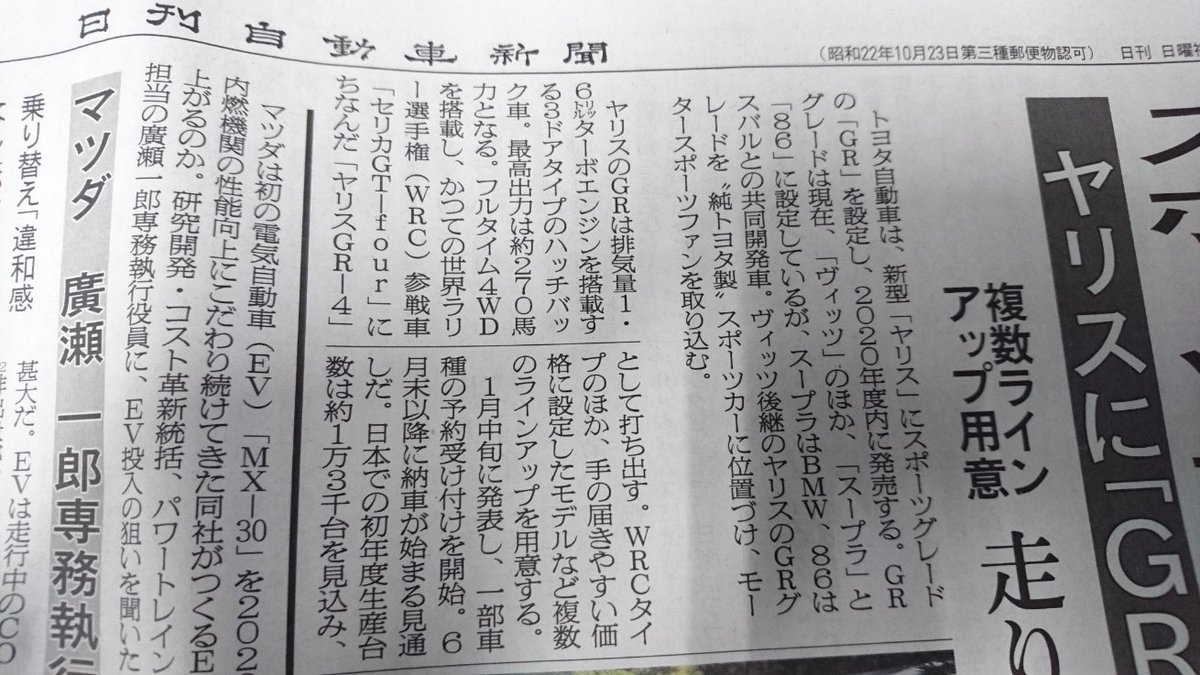 日刊自動車新聞
（昭和22年10月23日第三種郵便物認可）　日刊　日曜
ヤリスに「GR
複数ライン
アップ用意
走り
トヨタ自動車は、新型「ヤリス」にスポーツグレード
の「GR」を設定し、2020年度内に発売する。GR
グレードは現在、「ヴィッツ」のほか、「スープラ」と
「86」に設定しているが、スープラはBMW、86は
スバルとの共同開発車。ヴィッツ後継のヤリスのGRグ
レードを〝純トヨタ製〟スポーツカーに位置づけ、モー
タースポーツファンを取り込む。
ヤリスのGRは排気量1・
6㍑ターボエンジンを搭載す
る3ドアタイプのハッチバッ
ク車。最高出力は約270馬
力となる。フルタイム4WD
を搭載し、かつての世界ラリ
ー選手権（WRC）参戦車
「セリカGT―four」に
ちなんだ「ヤリスGR―4」
として打ち出す。WRCタイ
プのほか、手の届きやすい価
格に設定したモデルなど複数
のラインアップを用意する。
1月中旬に発表し、一部車
種の予約受け付けを開始。6
月末以降に納車が始まる見通
しだ。日本での初年度生産台
数は約1万3千台を見込み、
マツダは初の電気自動車（EV）「MX―30」を202
内燃機関の性能向上にこだわり続けてきた同社がつくるE
上がるのか。研究開発・コスト革新統括、パワートレイン
担当の廣瀬一郎専務執行役員に、EV投入の狙いを聞いた
マツダ　廣瀬　一郎専務執行
乗り替え「違和感
甚大だ。EVは走行中のCO